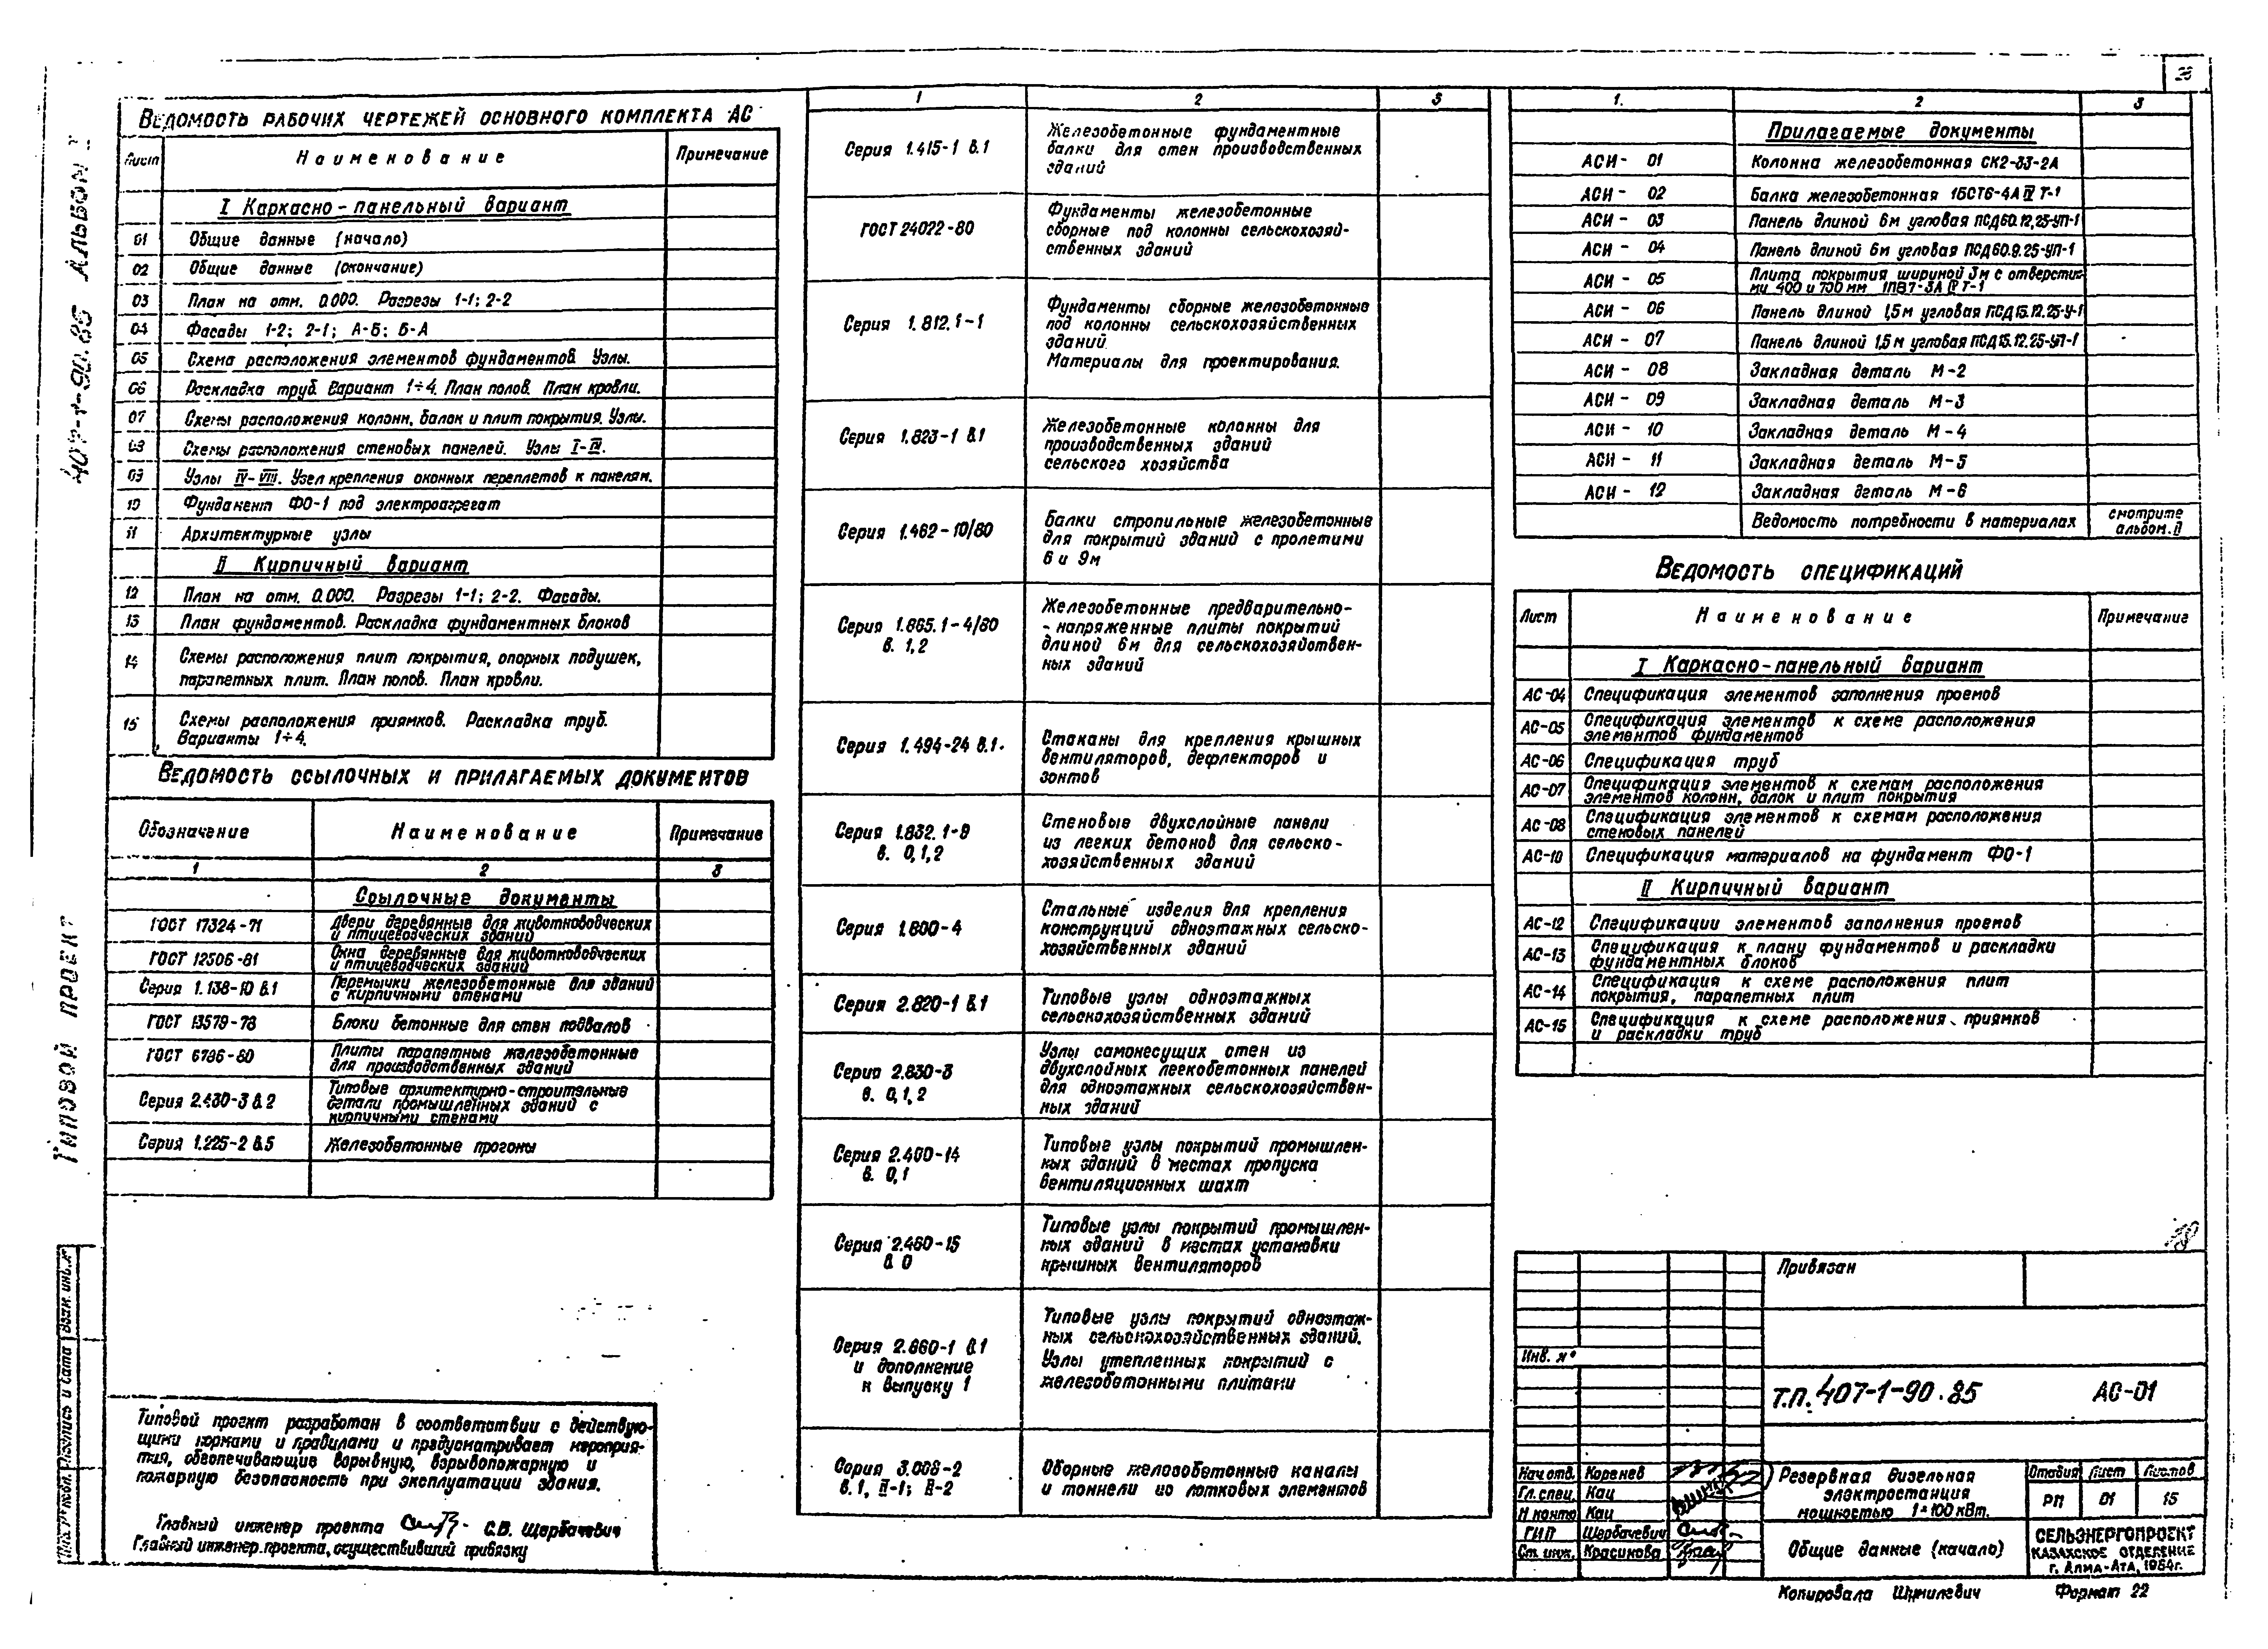 28
407-1-90.85 АЛЬБОМ I
ТИПОВОЙ ПРОЕКТ
ВЕДОМОСТЬ РАБОЧИХ ЧЕРТЕЖЕЙ ОСНОВНОГО КОМПЛЕКТА АС
Лист Наименование Примечание
I Каркасно-панельный вариант
01 Общие данные (начало)
02 Общие данные (окончание)
03 План на отм. 0.000. Разрезы 1-1; 2-2
04 Фасады 1-2; 2-1; А-Б; Б-А
05 Схема расположения элементов фундаментов. Узлы.
06 Раскладка труб. Вариант 1÷4. План полов. План кровли.
07 Схемы расположения колонн, балок и плит покрытия. Узлы.
08 Схемы расположения стеновых панелей. Узлы I-III.
09 Узлы IV-VIII. Узел крепления оконных переплетов к панелям.
10 Фундамент ФО-1 под электроагрегат
11 Архитектурные узлы
II Кирпичный вариант
12 План на отм. 0.000. Разрезы 1-1; 2-2. Фасады.
13 План фундаментов. Раскладка фундаментных блоков
14 Схемы расположения плит покрытия, опорных подушек,
парапетных плит. План полов. План кровли.
15 Схемы расположения приямков. Раскладка труб.
Варианты 1÷4.
ВЕДОМОСТЬ ССЫЛОЧНЫХ И ПРИЛАГАЕМЫХ ДОКУМЕНТОВ
Обозначение Наименование Примечание
1 2 3
Ссылочные документы
ГОСТ 17324-71 Двери деревянные для животноводческих
и птицеводческих зданий
ГОСТ 12506-81 Окна деревянные для животноводческих
и птицеводческих зданий
Серия 1.138-10 в.1 Перемычки железобетонные для зданий
с кирпичными стенами
ГОСТ 13579-78 Блоки бетонные для стен подвалов
ГОСТ 6786-80 Плиты парапетные железобетонные
для производственных зданий
Серия 2.430-3 в.2 Типовые архитектурно-строительные
детали промышленных зданий с
кирпичными стенами
Серия 1.225-2 в.5 Железобетонные прогоны
Типовой проект разработан в соответствии с действую-
щими нормами и правилами и предусматривает мероприя-
тия, обеспечивающие взрывную, взрывопожарную и
пожарную безопасность при эксплуатации здания.
Главный инженер проекта С.В. Щербачевич
Главный инженер проекта, осуществивший привязку
Инв. № подл. Подпись и дата Взам. инв. №
1 2 3
Серия 1.415-1 в.1 Железобетонные фундаментные
балки для стен производственных
зданий
ГОСТ 24022-80 Фундаменты железобетонные
сборные под колонны сельскохозяй-
ственных зданий
Серия 1.812.1-1 Фундаменты сборные железобетонные
под колонны сельскохозяйственных
зданий.
Материалы для проектирования.
Серия 1.823-1 в.1 Железобетонные колонны для
производственных зданий
сельского хозяйства
Серия 1.462-10/80 Балки стропильные железобетонные
для покрытий зданий с пролетами
6 и 9м
Серия 1.865.1-4/80
в. 1,2
Железобетонные предварительно-
-напряженные плиты покрытий
длиной 6м для сельскохозяйствен-
ных зданий
Серия 1.494-24 в.1. Стаканы для крепления крышных
вентиляторов, дефлекторов и
зонтов
Серия 1.832.1-9
в. 0,1,2
Стеновые двухслойные панели
из легких бетонов для сельско-
хозяйственных зданий
Серия 1.800-4 Стальные изделия для крепления
конструкций одноэтажных сельско-
хозяйственных зданий
Серия 2.820-1 в.1 Типовые узлы одноэтажных
сельскохозяйственных зданий
Серия 2.830-3
в. 0,1,2
Узлы самонесущих стен из
двухслойных легкобетонных панелей
для одноэтажных сельскохозяйствен-
ных зданий
Серия 2.460-14
в. 0,1
Типовые узлы покрытий промышлен-
ных зданий в местах пропуска
вентиляционных шахт
Серия 2.460-15
в. 0
Типовые узлы покрытий промышлен-
ных зданий в местах установки
крышных вентиляторов
Серия 2.860-1 в.1
и дополнение
к выпуску 1
Типовые узлы покрытий одноэтаж-
ных сельскохозяйственных зданий.
Узлы утепленных покрытий с
железобетонными плитами
Серия 3.006-2
в. 1, II-1; II-2
Сборные железобетонные каналы
и тоннели из лотковых элементов
1. 2 3
Прилагаемые документы
АСИ- 01 Колонна железобетонная СК2-33-2А
АСИ- 02 Балка железобетонная 1БСТ6-4АIV Т-1
АСИ- 03 Панель длиной 6м угловая ПСД60.12,25-УП-1
АСИ- 04 Панель длиной 6м угловая ПСД60.9.25-УП-1
АСИ- 05 Плита покрытия шириной 3м с отверстия-
ми 400 и 700 мм 1ПВ7-3АIV Т-1
АСИ- 06 Панель длиной 1,5м угловая ПСД15.12.25-У-1
АСИ- 07 Панель длиной 1,5м угловая ПСД15.12.25-УП-1
АСИ- 08 Закладная деталь М-2
АСИ- 09 Закладная деталь М-3
АСИ- 10 Закладная деталь М-4
АСИ- 11 Закладная деталь М-5
АСИ- 12 Закладная деталь М-6
Ведомость потребности в материалах смотрите
альбом. II
ВЕДОМОСТЬ СПЕЦИФИКАЦИЙ
Лист Наименование Примечание
I Каркасно-панельный вариант
АС-04 Спецификация элементов заполнения проемов
АС-05 Спецификация элементов к схеме расположения
элементов фундаментов
АС-06 Спецификация труб
АС-07 Спецификация элементов к схемам расположения
элементов колонн, балок и плит покрытия
АС-08 Спецификация элементов к схемам расположения
стеновых панелей
АС-10 Спецификация материалов на фундамент ФО-1
II Кирпичный вариант
АС-12 Спецификации элементов заполнения проемов
АС-13 Спецификация к плану фундаментов и раскладки
фундаментных блоков
АС-14 Спецификация к схеме расположения плит
покрытия, парапетных плит
АС-15 Спецификация к схеме расположения приямков
и раскладки труб
Привязан
Инв. №
Т.П. 407-1-90.85 АС-01
Нач. отд. Коренев
Гл. спец. Кац
Н контр Кац
ГИП Щербачевич
Ст. инж. Красикова
Резервная дизельная
электростанция
мощностью 1×100 кВт.
Стадия Лист Листов
РП 01 15
Общие данные (начало)
СЕЛЬЭНЕРГОПРОЕКТ
КАЗАХСКОЕ ОТДЕЛЕНИЕ
г. АЛМА-АТА, 1984г.
Копировала Шумилевич Формат 22